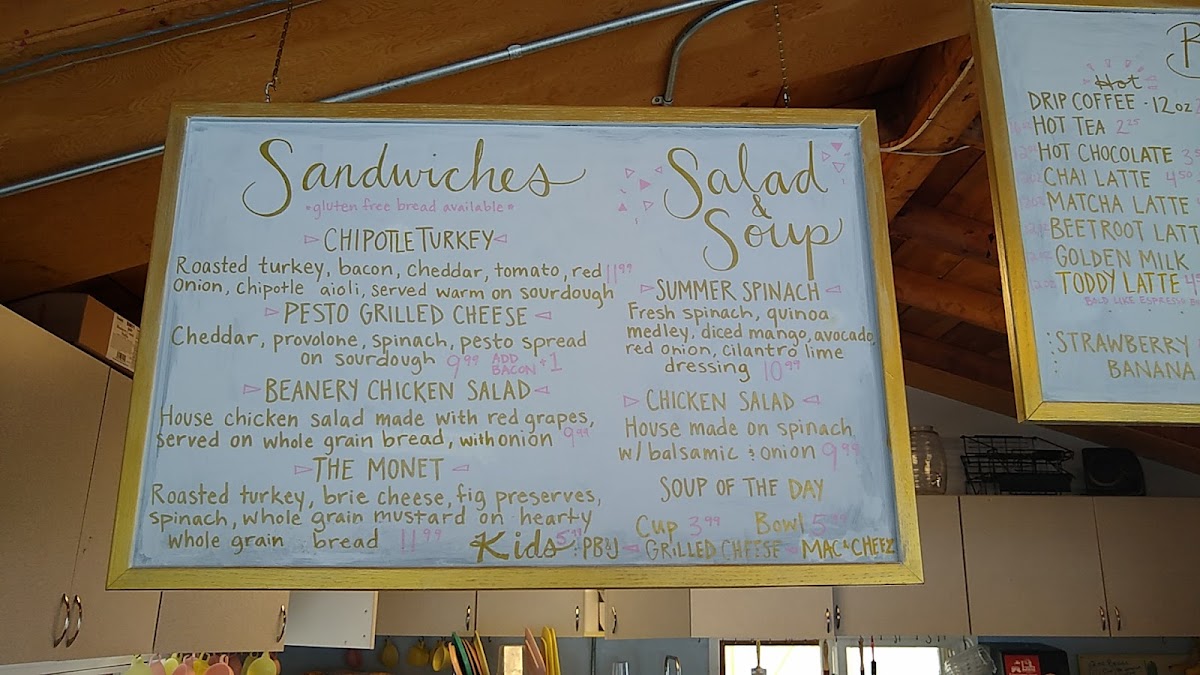 Sandwiches
*gluten free bread available*
CHIPOTLE TURKEY
Roasted turkey, bacon, cheddar, tomato, red 11.99
onion, chipotle aioli, served warm on sourdough
PESTO GRILLED CHEESE
Cheddar, provolone, spinach, pesto spread
on sourdough 9.99 ADD BACON +1
BEANERY CHICKEN SALAD
House chicken salad made with red grapes,
served on whole grain bread, with onion 9.99
THE MONET
Roasted turkey, brie cheese, fig preserves,
spinach, whole grain mustard on hearty
whole grain bread 11.99
Salad
&
Soup
SUMMER SPINACH
Fresh spinach, quinoa
medley, diced mango, avocado,
red onion, cilantro lime
dressing 10.99
CHICKEN SALAD
House made on spinach
w/ balsamic & onion 9.99
SOUP OF THE DAY
Cup 3.99 Bowl 5.99
Kids 5.99: PB&J - GRILLED CHEESE - MAC & CHEEZ
Hot
DRIP COFFEE - 12oz
HOT TEA 2.25
HOT CHOCOLATE
CHAI LATTE 4.50
MATCHA LATTE
BEETROOT LATT
GOLDEN MILK
TODDY LATTE
BOLD LIKE ESPRESSO
STRAWBERRY
BANANA